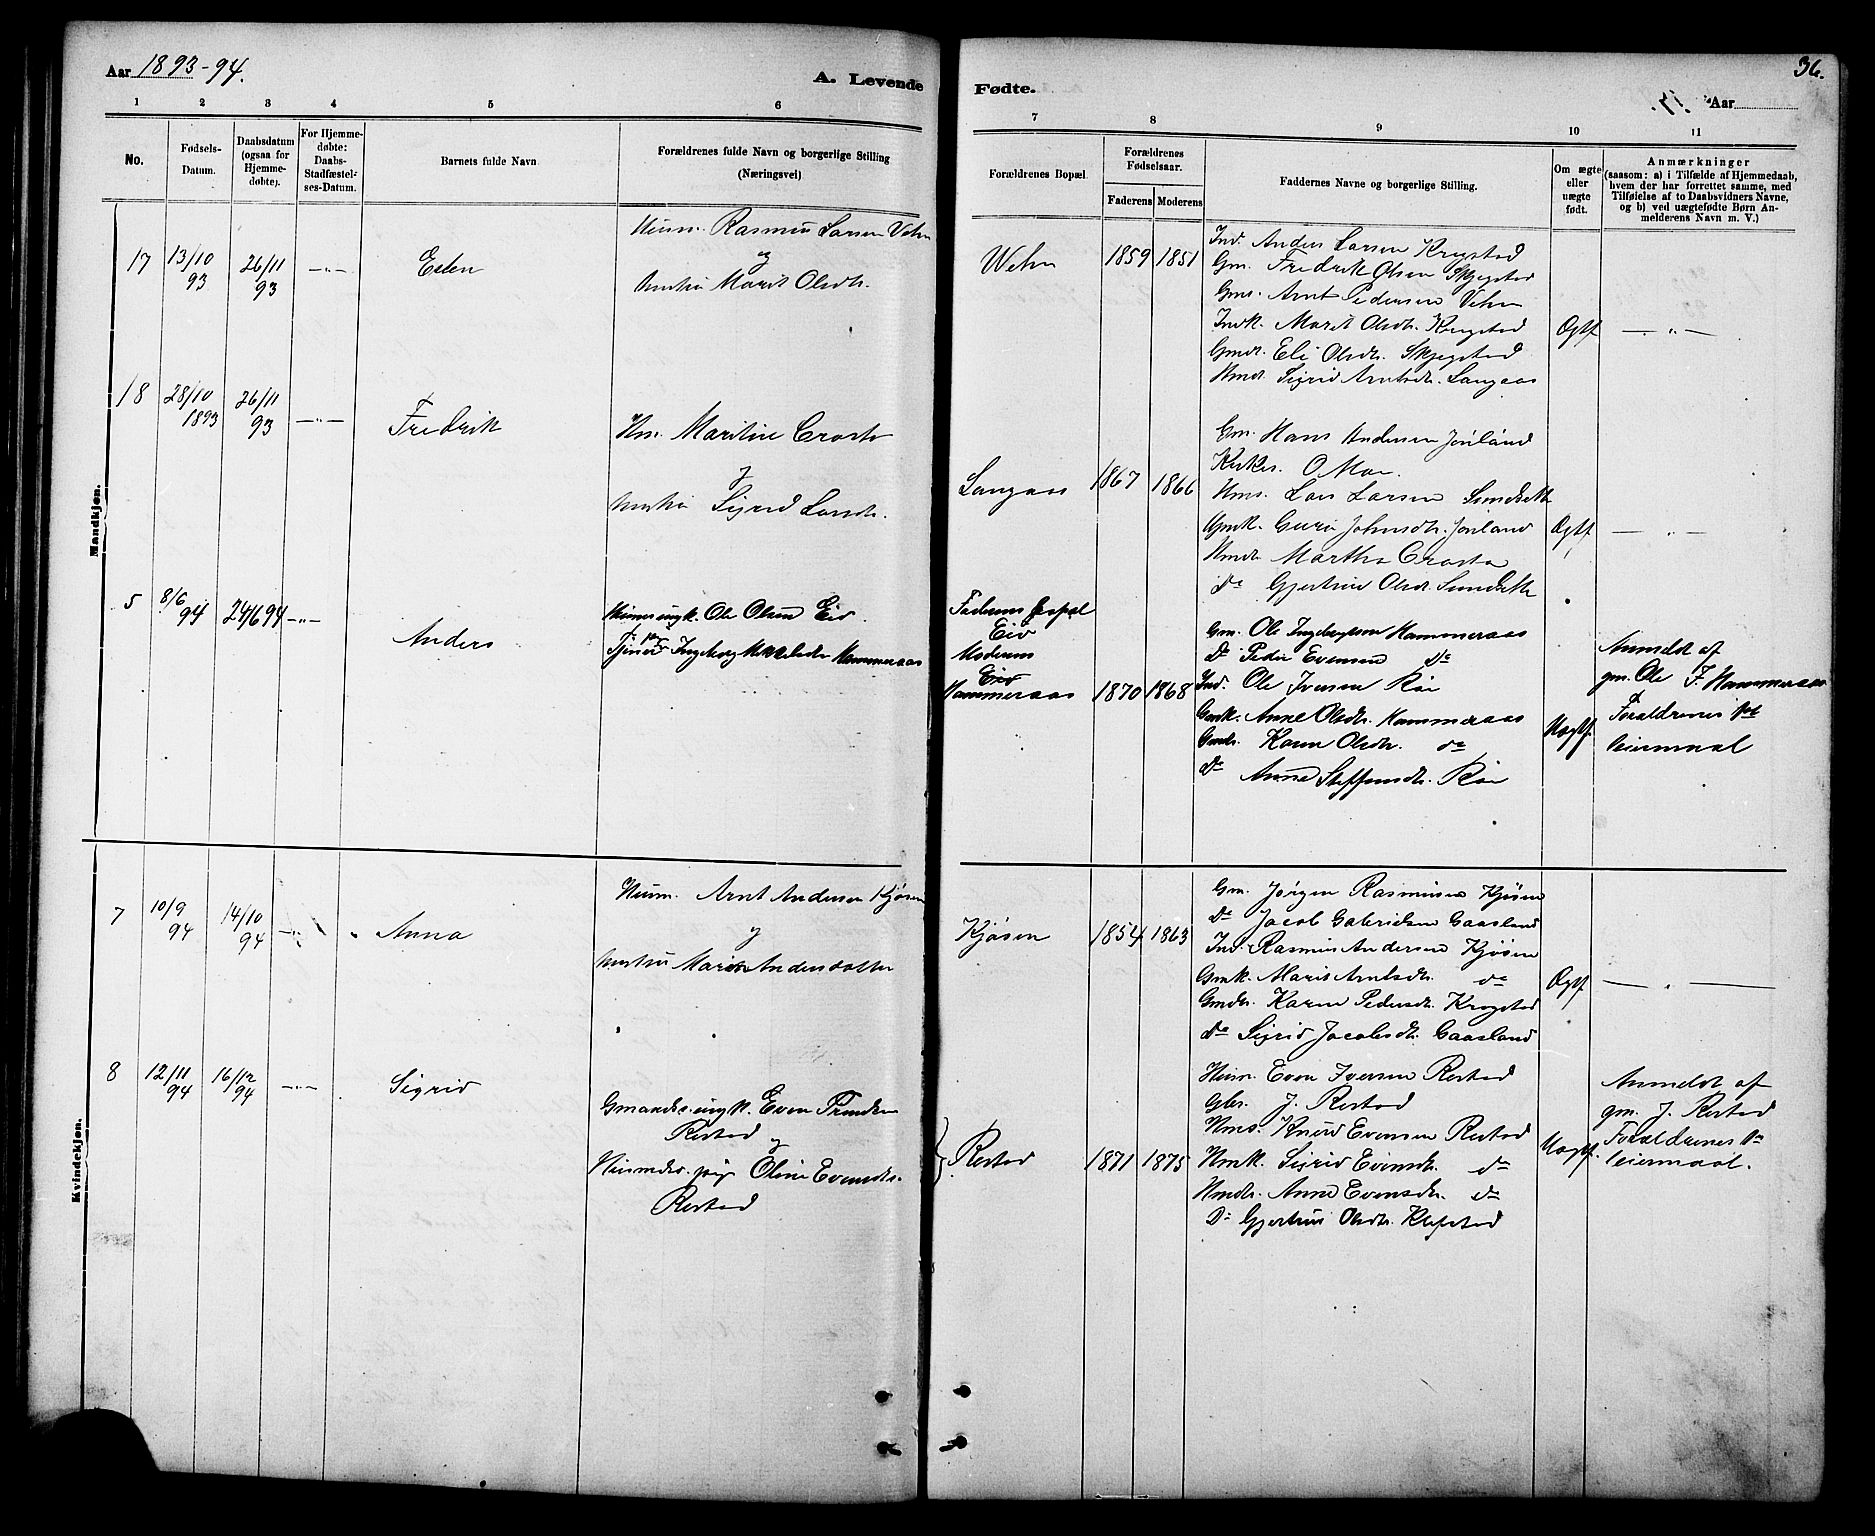 Aar 1893-94.
A. Levende
Fødte.
36.
Aar
1 2 3 4 5 6 7 8 9 10 11
No.
Fødsels-
Datum.
Daabsdatum
(ogsaa for
Hjemme-
døbte).
For Hjemme-
døbte:
Daabs-
Stadfæstel-
ses-Datum.
Barnets fulde Navn
Forældrenes fulde Navn og borgerlige Stilling
(Næringsvei)
Forældrenes Bopæl.
Forældrenes
Fødselsaar.
Faderens Moderens
Faddernes Navne og borgerlige Stilling.
Om ægte
eller
uægte
født.
Anmærkninger
(saasom: a) i Tilfælde af Hjemmedaab,
hvem der har forrettet samme, med
Tilføielse af to Daabsvidners Navne,
og b) ved uægtefødte Børn An-
melderens Navn m. V.)
Mandkjøn.
17 13/10 93 26/11 93 —„—
Rasmus Larsen Vehn
og
Marit Olsdtr.
Wehn 1859 1851
Ind. Anders Larsen Krogstad
Gm. Fredrik Olsen Skjegstad
Gms. Arnt Pedersen Vehn
Indk. Marit Olsdtr. Krogstad
Gmdr. Eli Olsdtr. Skjegstad
Hmdr. Sigrid Arntsdtr. Langaas
Ægtf —„—
18 28/10 1893 26/11 93 —„—
Fredrik
Hm.
og
Sigrid Larsdtr.
Langaas 1867 1866
Gm. Hans Andersen
O Moe.
Hms. Lars Larsen
Gmk. Guru Johnsdtr.
Hmdr. Martha
do Gjertrud Olsdtr.
Ægtf —„—
5 8/6 94 24/6 94 —„—
Anders
Ole Olsen Eid.
Ingeborg Mikkelsdr Hammeraas
Faderens Bopæl
Eid
Moderens
Hammeraas 1870 1868
Gm. Ole Ingebrigtsen Hammeraas
Do Peder Evensen do
Ind. Ole Iversen Röe
Gmk. Anne Olsdtr. Hammeraas
Gmdr. Karen Olsdtr. do
do Anne Steffensdtr. Röe
Uægtf.
Anmeldt af
gm. Ole I. Hammeraas
Forældrenes 1ste
leiermaal
Kvindekjøn.
7 10/9 94 14/10 94 —„—
Anna
Husm. Arnt Andersen Kjøsen
og
hustru Marit Andersdatter
Kjøsen 1854 1863
Gm. Jørgen Rasmusen Kjøsen
Do Jacob Gabrielsen Gaasland
Ind. Rasmus Andersen Kjøsen
Gmk. Marit Arntsdtr. do
Gmdr. Karen Pedersdtr. Krogstad
do Sigrid Jacobsdtr. Gaasland
Ægtf — „ —
8 12/11 94 16/12 94 —„—
Sigrid
Gmands. ungk. Even
Restad og
Husmds. pige Oline Evensdtr.
Restad
Restad 1871 1875
Husm. Even Iversen Restad
Gbr. J. Restad
Hms. Knud Evensen Restad
Hmk. Sigrid Evensdtr. do
Hmdr. Anne Evensdtr. do
Do Gjertrud Olsdtr.
Uægtf.
Anmeldt af
gm. J. Restad
Forældrenes 1ste
leiermaal.